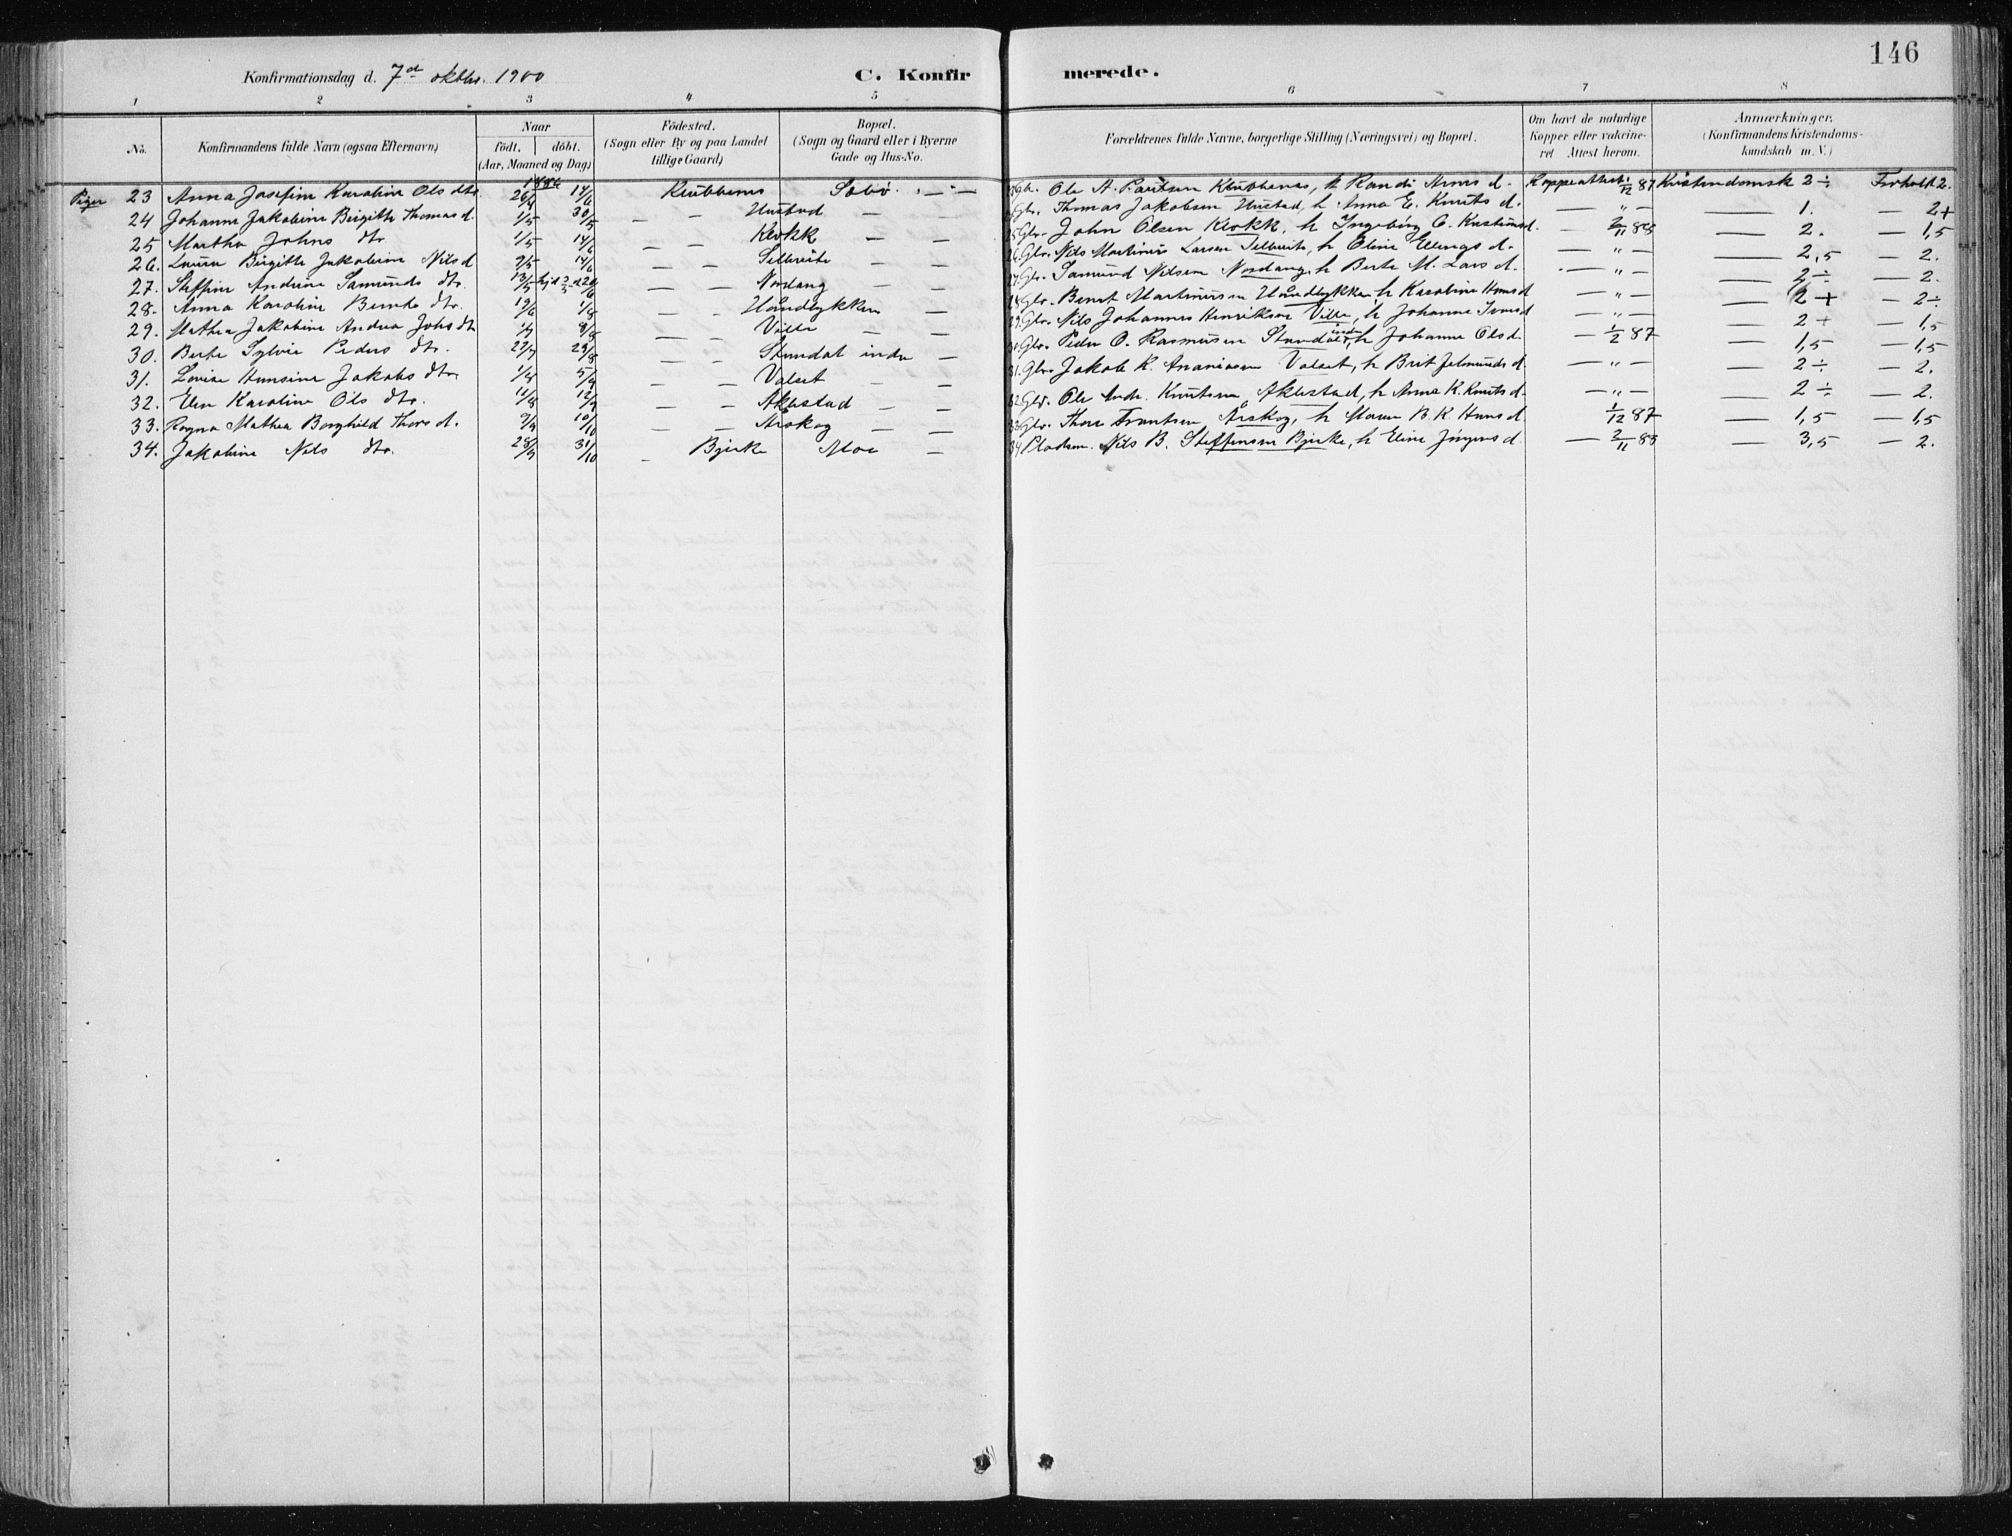 146
Konfirmationsdag d. 7de oktbr. 1900
C. Konfirmerede.
1 2 3 4 5 6 7 8
No. Konfirmandens fulde Navn (ogsaa Efternavn) Naar födt. döbt. (Aar, Maaned og Dag) Födested. (Sogn eller By og paa Landet tillige Gaard) Bopæl. (Sogn og Gaard eller i Byerne Gade og Hus-No. Forældrenes fulde Navne, borgerlige Stilling (Næringsvei) og Bopæl. Om havt de naturlige Kopper eller vakcineret. Attest herom. Anmærkninger. (Konfirmandens Kristendomskundskab m. V.)
1886
Piger 23 Anna Josefine Karoline Ols dtr. 26/4 14/6 Klubbenes Sæbø Ole A. Paulsen Klubbenes, h Randi Arns d. Koppeattest 1/12 87 Kristendomsk 2÷ Forhold 2.
24 Johanne Jakobine Birgitte Thomas d. 1/5 30/5 — — Hustad — — Gbr. Thomas Jakobsen Hustad, h Anna E. Knuts d. — " — — 1. — 2+
25 Martha Johns dtr. 1/5 14/6 — — Klokk — — 25. Gbr. John Olsen Klokk, h Ingeborg O. d. — 2/11 88 — 2. — 1,5
26. Laura Birgitte Jakobine Nils d 2/5 14/6 — — — — 26. Gbr. Nils Martinus Larsen h Oline Ellings d. — " — — 2,5 — 2.
27. Steffine Andrine Samunds dtr. 13/5 20/6 — — Nordang — — 27. Gbr. Samund Nilsen Nordang, h Berte M. Lars d. — " — — 2÷ — 2.
28. Anna Karoline Bernts dtr. 19/6 1/8 — — — Gbr. Bernt Martinusen h Karoline Hans d — " — — 2+ — 2÷
29. Mathea Jakobine Andrea Johs dtr 8/8 — — Ville — — 29. Gbr. Nils Johannes Henriksen Ville, h Johanne Ivars d — " — — 2+ — 1,5
30. Berte Sylvie Peders dtr. 22/7 29/8 — — Standal indre — Gbr. Peder O. Rasmusen Standal indre, h Johanne Ols d. — 1/2 87 — 1,5 — 1,5
31. Lovise Hansine Jakobs dtr. 5/9 — — Valset — — 31. Gbr. Jakob K. Ananiasen Valset, h Brit d. — " — — 2÷ — 2.
32. Elen Karoline Ols dtr. 11/8 12/9 — — Aklestad — — 32. Gbr. Ole Andr. Knutsen Aklestad, h Anna K. Knuts d. — " — — 2÷ — 2.
33. Ragna Mathea Borghild Thors d. 10/10 — — Årskog — — 33. Gbr. Thore Frantsen Årskog, h Maren B. K. Hans d. 1/12 87 — 1,5 1,5
34. Jakobine Nils dtr. 28/9 31/10 — Bjerke Moe — 34 Pladsm. Nils B. Steffensen Bjerke, h Eline Jörgens d. — 2/11 88 — 3,5 — 2.